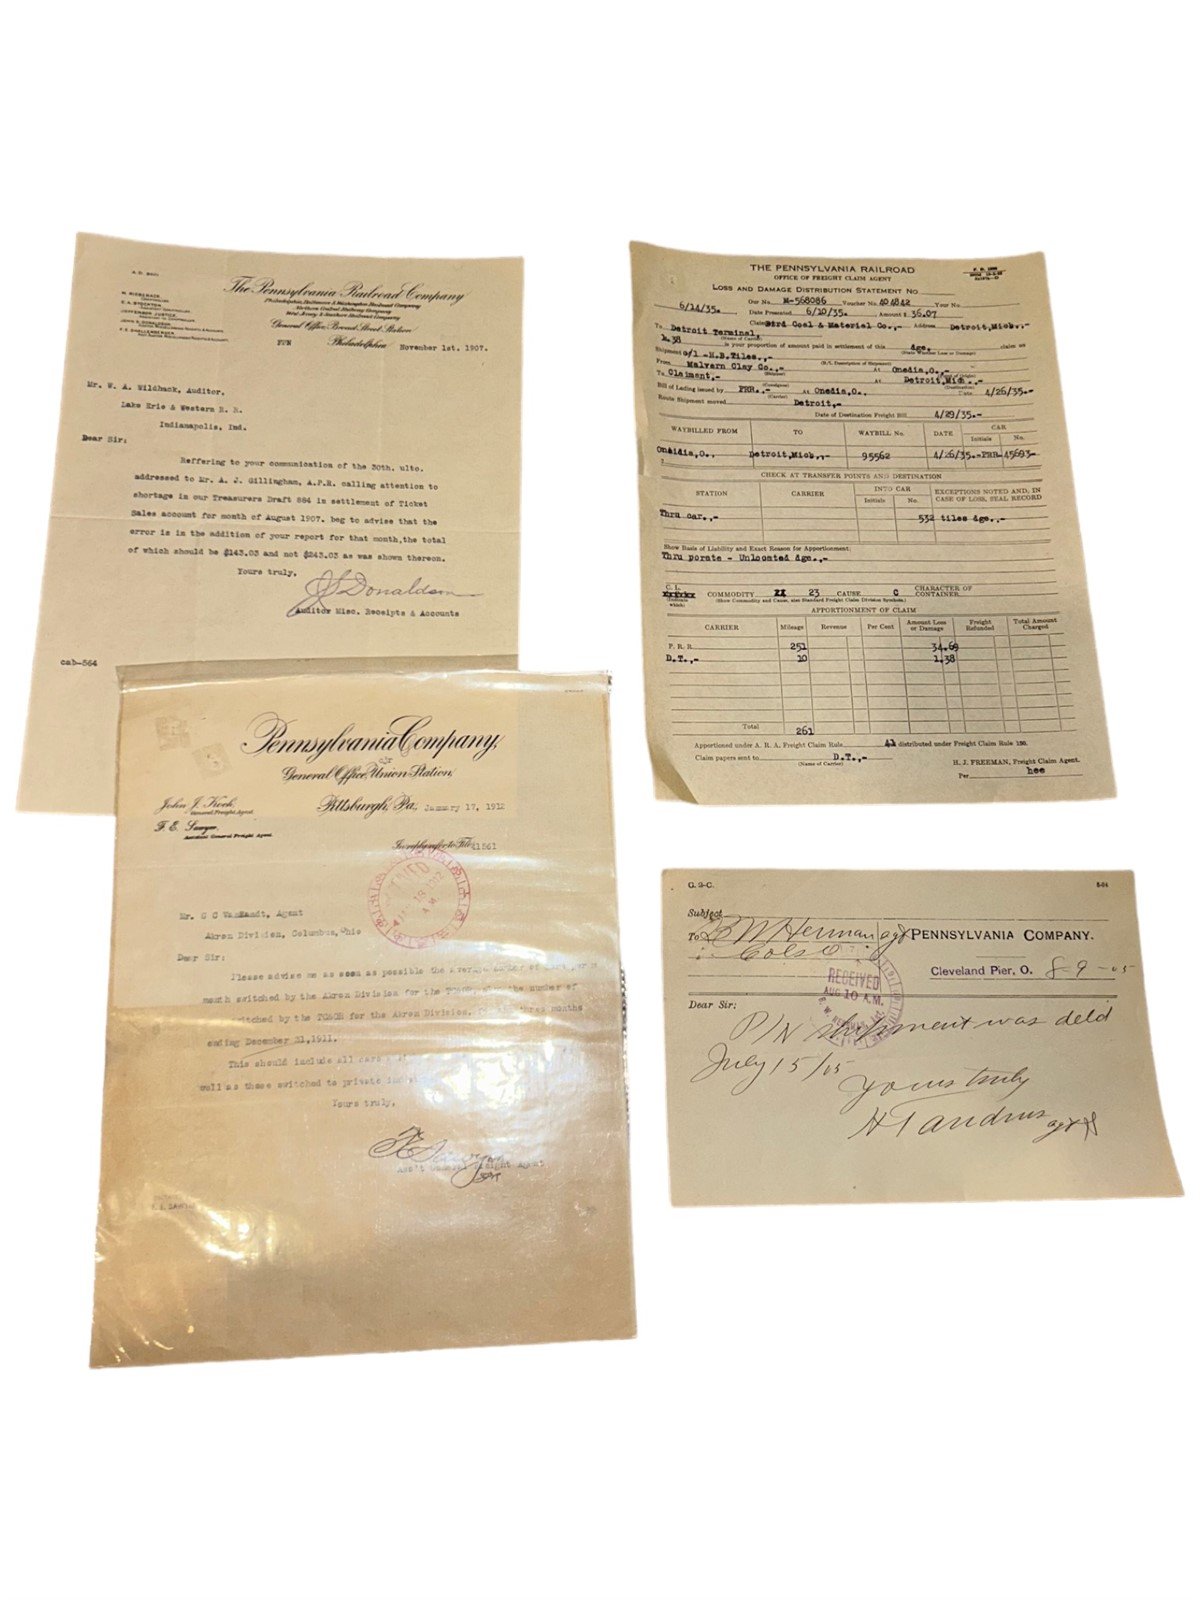 A.D. 2601
The Pennsylvania Railroad Company
Philadelphia, Baltimore & Washington Railroad Company
Northern Central Railway Company
West Jersey & Seashore Railroad Company
General Office, Broad Street Station
FPN Philadelphia November 1st. 1907.
M. RIEBENACK,
COMPTROLLER.
Mr. W. A. Wildhack, Auditor,
Lake Erie & Western R. R.
Indianapolis, Ind.
Dear Sir:
Reffering to your communication of the 30th. ulto.
addressed to Mr. A. J. Gillingham, A.P.R. calling attention to
shortage in our Treasurers Draft 884 in settlement of Ticket
Sales account for month of August 1907. beg to advise that the
error is in the addition of your report for that month,the total
of which should be $143.03 and not $243.03 as was shown thereon.
Yours truly,
J S Donaldson
Auditor Misc. Receipts & Accounts
cab-564
Pennsylvania Company,
General Office, Union Station,
Pittsburgh, Pa., January 17, 1912
John J. Koch,
General Freight Agent.
F. E. Sawyer,
Assistant General Freight Agent.
In reply refer to File 21561
Mr. S C VanZandt, Agent
Akron Division, Columbus, Ohio
Dear Sir:
Please advise me as soon as possible the average number of cars per
month switched by the Akron Division for the
the number of
switched by the for the Akron Division, three months
ending December 31,1911.
This should include all cars
well as those switched to private
Yours truly,
F E Sawyer
Ass't General Freight Agent
THE PENNSYLVANIA RAILROAD
OFFICE OF FREIGHT CLAIM AGENT
LOSS AND DAMAGE DISTRIBUTION STATEMENT NO
6/14/35.- Our No. M-568086 Voucher No. 404842 Your No
Date Presented 6/10/35. Amount $ 36.07
To Detroit Terminal, Claim Bird Coal & Material Co.,- Address Detroit,Mich.,-
(Name of Carrier)
1.38 is your proportion of amount paid in settlement of this dge. claim on
(State Whether Loss or Damage)
Shipment c/l -H.B.Tiles.,-
(B/L Description of Shipment)
From Malvern Clay Co.,- At Onedia,O.,-
(Shipper) (Point of Origin)
To Claimant,- At Detroit,Mich.,-
(Consignee) (Destination)
Bill of Lading issued by PRR.,- At Onedia,O., Date 4/26/35.-
(Carrier)
Route Shipment moved Detroit,-
Date of Destination Freight Bill 4/29/35.-
WAYBILLED FROM TO WAYBILL No. DATE CAR
Initials No.
Oneidia,O., Detroit,Mich.,- 95562 4/26/35.-PRR-45693-
CHECK AT TRANSFER POINTS AND DESTINATION
STATION CARRIER INTO CAR EXCEPTIONS NOTED AND, IN
Initials No. CASE OF LOSS, SEAL RECORD
Thru car.,- 532 tiles dge.,-
Show Basis of Liability and Exact Reason for Apportionment:
Thru porate - Unlocated dge.,-
C. L. COMMODITY 23 CAUSE C CHARACTER OF
CONTAINER
(Show Commodity and Cause, also Standard Freight Claim Division Symbols.)
APPORTIONMENT OF CLAIM
CARRIER Mileage Revenue Per Cent Amount Loss or Damage Freight Refunded Total Amount Charged
P. R. R. 251 34.69
D.T.,- 10 1.38
Total 261
Apportioned under A. R. A. Freight Claim Rule 41 distributed under Freight Claim Rule 150.
Claim papers sent to D.T.,- H. J. FREEMAN, Freight Claim Agent.
(Name of Carrier) Per hee
G. 2-C. 5-04
Subject
To B W Herman agt PENNSYLVANIA COMPANY.
Cols O
Cleveland Pier, O. 8-9-05
RECEIVED
AUG 10 A.M.
Dear Sir;
P/N shipment was deld
July 15/05
Yours truly
H T Andrus agt